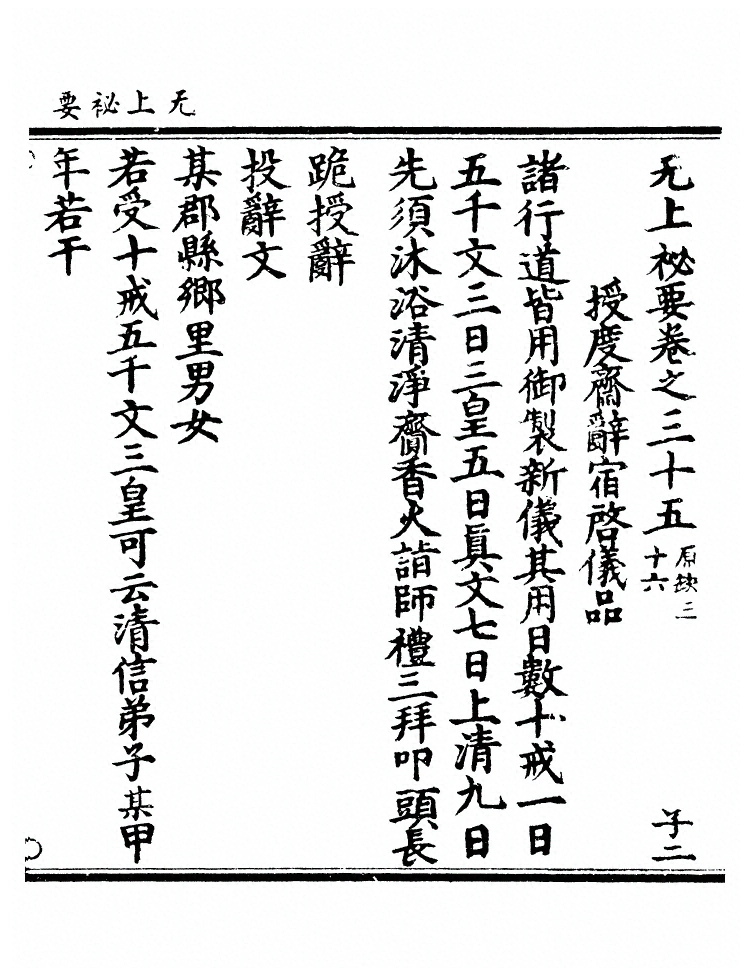 无上祕要
无上祕要卷之三十五 原缺三十六 子二
授度齋辭宿啓儀品
諸行道皆用御製新儀其用日數十戒一日
五千文三日三皇五日眞文七日上清九日
先須沐浴清淨齎香火詣師禮三拜叩頭長
跪授辭
投辭文
某郡縣鄉里男女
若受十戒五千文三皇可云清信弟子某甲
年若干